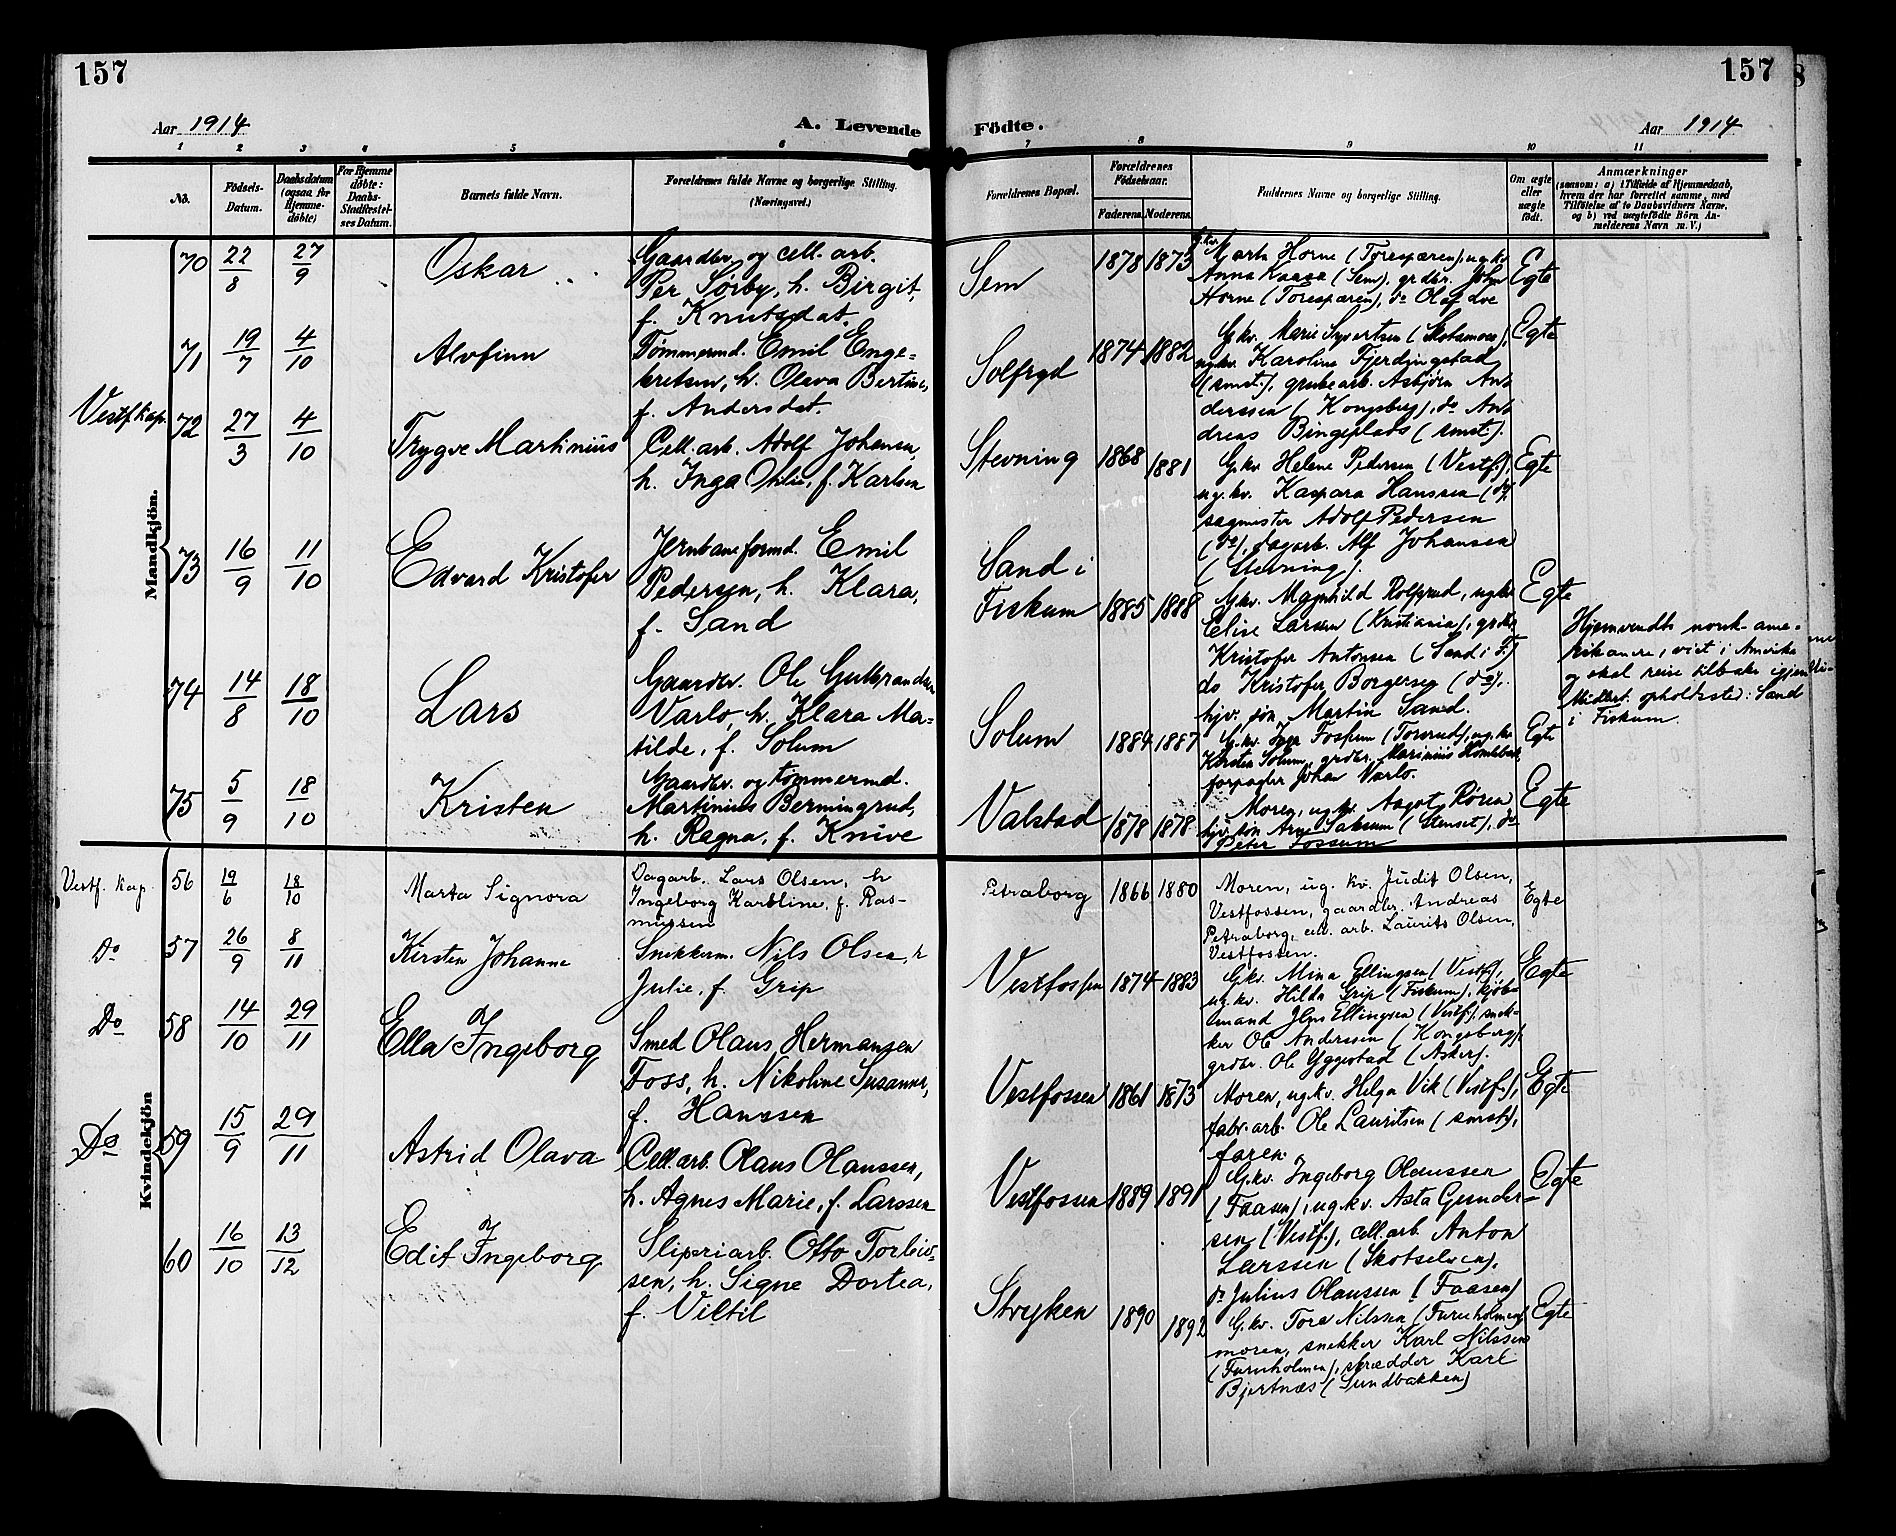 157
157
Aar 1914
A. Levende
Födte.
Aar 1914
1 2 3 4 5 6 7 8 9 10 11
No.
Födsels-
Datum.
Daabsdatum
(ogsaa for
Hjemme-
döbte)
For Hjemme
döbte:
Daabs-
Stadfæstel-
ses Datum.
Barnets fulde Navn.
Forældrenes fulde Navne og borgerlige Stilling.
(Næringsvei.)
Forældrenes Bopæl.
Forældrenes
Födselsaar.
Faderens. Moderens.
Faddernes Navne og borgerlige Stilling.
Om ægte
eller
uægte
födt.
Anmærkninger
(saasom: a) i Tilfælde af Hjemmedaab,
hvem der har forrettet samme, med
Tilföielse af to Daabsvidners Navne,
og b) ved uægtefödte Börn An-
melderens Navn m. V.)
Mandkjön.
70 22/8 27/9 Oskar
Gaardbr. og cell. arb.
Per Sørby, h. Birgit,
f. Knutsdat.
Sem 1878 1873
G.kv. Marta Horne (Torespæren), ug.kv.
Anna Kaasa (Sem), grdbr. John
Horne (Torespæren), do Olaf do
Egte
71 19/7 4/10 Alvfinn
Tømmermd. Emil Enge-
bretsen, h. Olava Bertine,
f. Andersdat.
Solfryd 1874 1882
G.kv. Marie Syvertsen (Skotsmoen),
ug.kv. Karoline Fjerdingstad
(smst.), grubearb. Asbjørn An-
derssen (Kongsberg), do An-
dreas Bingeplads (smst.).
Egte
Vestf. kap. 72 27/3 4/10 Trygve Martinius
Cell. arb. Adolf Johansen,
h. Inga Othilie, f. Karlsen
Stevning 1868 1881
G.kv. Helene Pedersen (Vestf.),
ug.kv. Kaspara Hanssen (do),
sagmester Adolf Pedersen
(do), dagarb. Alf Johansen
(Stevning).
Egte
73 16/9 11/10 Edvard Kristofer
Jernbaneformd. Emil
Pedersen, h. Klara,
f. Sand
Sand i
Fiskum 1885 1888
G.kv. Magnhild Rolfsrud, ug.kv.
Elise Larssen (Kristiania), grdbr.
Kristofer Antonsen (Sand i F.)
do Kristofer Borgersen (do),
hjv. søn Martin Sand.
Egte
Hjemvendte norsk-ame-
rikanere, viet i Amerika
og skal reise tilbake igjen
Midlert. opholdssted: Sand
i Fiskum.
74 14/8 18/10 Lars
Gaardbr. Ole Gulbrandsen
Varlo, h. Klara Ma-
tilde, f. Solum
Solum 1884 1887
G.kv. Fossum (Torsrud), ug.kv.
Kirsten Solum, grdbr. Marinius
forpagter Johan Varlo.
Egte
75 5/9 18/10 Kristen
Gaardbr. og tømmermd.
Martinius Bermingrud,
h. Ragna, f. Knive
Valstad 1878 1878
Moren, ug.kv. Aagot Røren
hjv. søn Arne Saksum (Stenset), do
Peter Fossum
Egte
Kvindekjön
Vestf. kap. 56 19/6 18/10 Marta Signora
Dagarb. Lars Olsen, h
Ingeborg Karoline, f. Ras-
mussen
Petraborg 1866 1880
Moren, ug. kv. Judit Olsen,
Vestfossen, gaardbr. Andreas
Petraborg, cell. arb. Laurits Olsen,
Vestfossen.
Egte
Do 57 26/9 8/11 Kirsten Johanne
Snekkerm. Nils Olsen, h
Julie, f. Grip
Vestfossen 1874 1883
G.kv. Mina Ellingsen (Vestf.),
ug.kv. Hilda Grip (Fiskum), kjøb-
mand Jens Ellingsen (Vestf.), snek-
ker Ole Anderssen (Kongsberg),
grdbr. Ole Yggestad (Asker).
Egte
Do 58 14/10 29/11 Ella Ingeborg
Smed Olaus Hermansen
Foss, h. Nikoline Susanne,
f. Hanssen
Vestfossen 1861 1873
Moren, ug.kv. Helga Vik (Vestf.),
fabr. arb. Ole Lauritsen (smst.),
faren.
Egte
Do 59 15/9 29/11 Astrid Olava
Cell. arb. Olaus Olaussen,
h. Agnes Marie, f. Larssen
Vestfossen 1889 1891
G.kv. Ingeborg Olaussen
(Faasen), ug.kv. Asta Gunder-
sen (Vestf.), cell. arb. Anton
Larssen (Skotselven),
do Julius Olaussen (Faasen)
Egte
60 16/10 13/12 Edit Ingeborg
Sliperiarb. Otto Torbiø-
sen, h. Signe Dortea,
f. Viltil
Stryken 1890 1892
G.kv. Tora Nilssen (Furuholmen)
moren, snekker Karl Nilssen
(Furuholmen), skrædder Karl
Bjertnæs (Sundbakken)
Egte